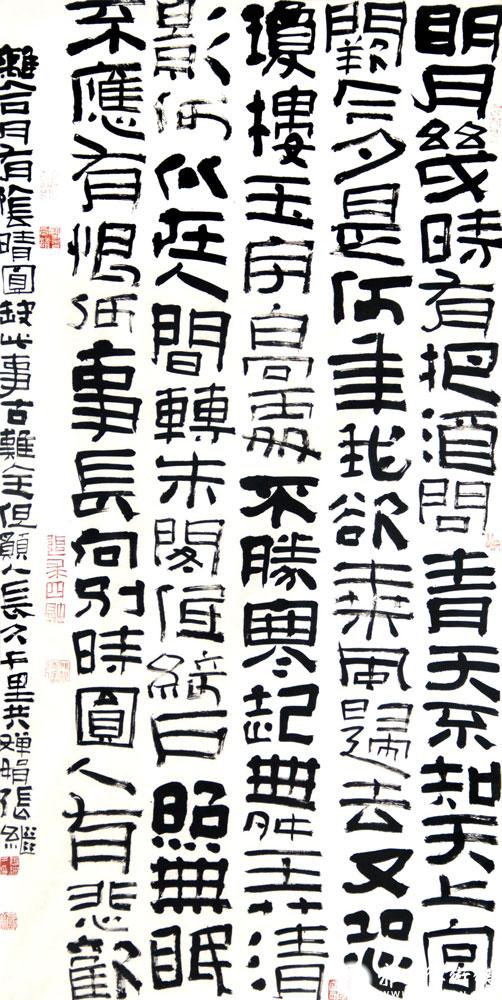 明月幾時有把酒問青天不知天上宮
闕今夕是何年我欲乘風歸去又恐
瓊樓玉宇高處不勝寒起舞弄清
影何似在人間轉朱閣低綺户照無眠
不應有恨何事長向别時圓人有悲歡
離合月有陰晴圓缺此事古難全但願人長久千里共嬋娟張繼